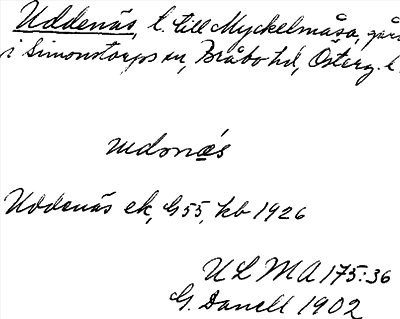 Uddenäs, t. till Myckelmåsa, går
i Simonstorps sn, Bråbo hd, Österg. l.
udonæ̀s
Uddenäs ek, G55, kb 1926
ULMA 175:36
G. Danell 1902